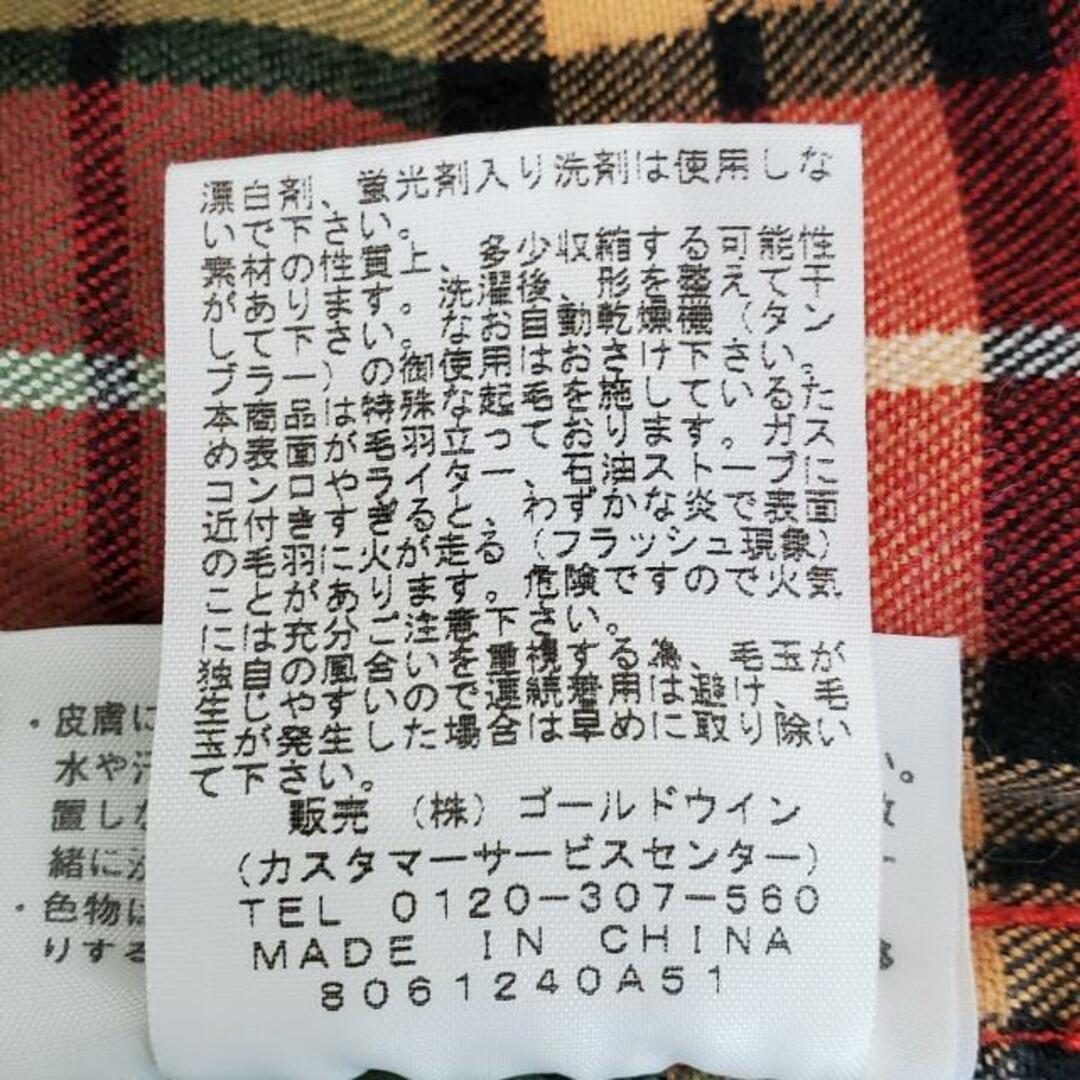 漂白剤、蛍光剤入り洗剤は使用しな
いで下さい。
素材の性質上、多少収縮する可能性
があります。洗濯後、形を整えて干
して下さい。なお自動乾燥機(タン
ブラー)の御使用はお避け下さい。
本商品は特殊な起毛を施しているた
め表面が毛羽立っております。ガス
コンロやライター、石油ストーブに
近付きすぎると、わずかな炎で表面
の毛羽に火が走る(フラッシュ現象)
ことがあります。危険ですので火気
には充分ご注意下さい。
独自の風合いを重視する為、毛玉が
生じやすいので連続着用は避け、毛
玉が発生した場合は早めに取り除い
て下さい。
販売 (株)ゴールドウイン
(カスタマーサービスセンター)
TEL 0120-307-560
MADE IN CHINA
8061240A51
・皮膚に
水や
置し
緒に
・色物は
りする